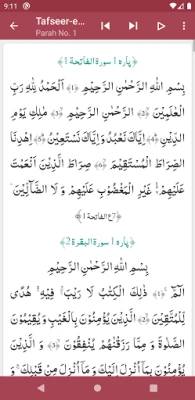 9:11
Tafseer-e...
Parah No. 1
﴿پارہ 1 سورۃ الفاتحۃ 1﴾
بِسْمِ اللّٰهِ الرَّحْمٰنِ الرَّحِیْمِ ﴿1﴾ اَلْحَمْدُ لِلّٰهِ رَبِّ
الْعٰلَمِیْنَ ﴿2﴾ الرَّحْمٰنِ الرَّحِیْمِ ﴿3﴾ مٰلِكِ یَوْمِ
الدِّیْنِ ﴿4﴾ اِیَّاكَ نَعْبُدُ وَ اِیَّاكَ نَسْتَعِیْنُ ﴿5﴾ اِهْدِنَا
الصِّرَاطَ الْمُسْتَقِیْمَ ﴿6﴾ صِرَاطَ الَّذِیْنَ اَنْعَمْتَ
عَلَیْهِمْ ۙ۬ غَیْرِ الْمَغْضُوْبِ عَلَیْهِمْ وَ لَا الضَّآلِّیْنَ
﴿7ع الفاتحة 1﴾
﴿پارہ 1 سورۃ البقرۃ 2﴾
بِسْمِ اللّٰهِ الرَّحْمٰنِ الرَّحِیْمِ
الٓمّٓ ﴿1﴾ ذٰلِكَ الْكِتٰبُ لَا رَیْبَ ۛۖ فِیْهِ ۛۚ هُدًی
لِّلْمُتَّقِیْنَ ﴿2﴾ الَّذِیْنَ یُؤْمِنُوْنَ بِالْغَیْبِ وَ یُقِیْمُوْنَ
الصَّلٰوةَ وَ مِمَّا رَزَقْنٰهُمْ یُنْفِقُوْنَ ﴿3﴾ وَ الَّذِیْنَ
یُؤْمِنُوْنَ بِمَاۤ اُنْزِلَ اِلَیْكَ وَ مَاۤ اُنْزِلَ مِنْ قَبْلِكَ ۚ وَ